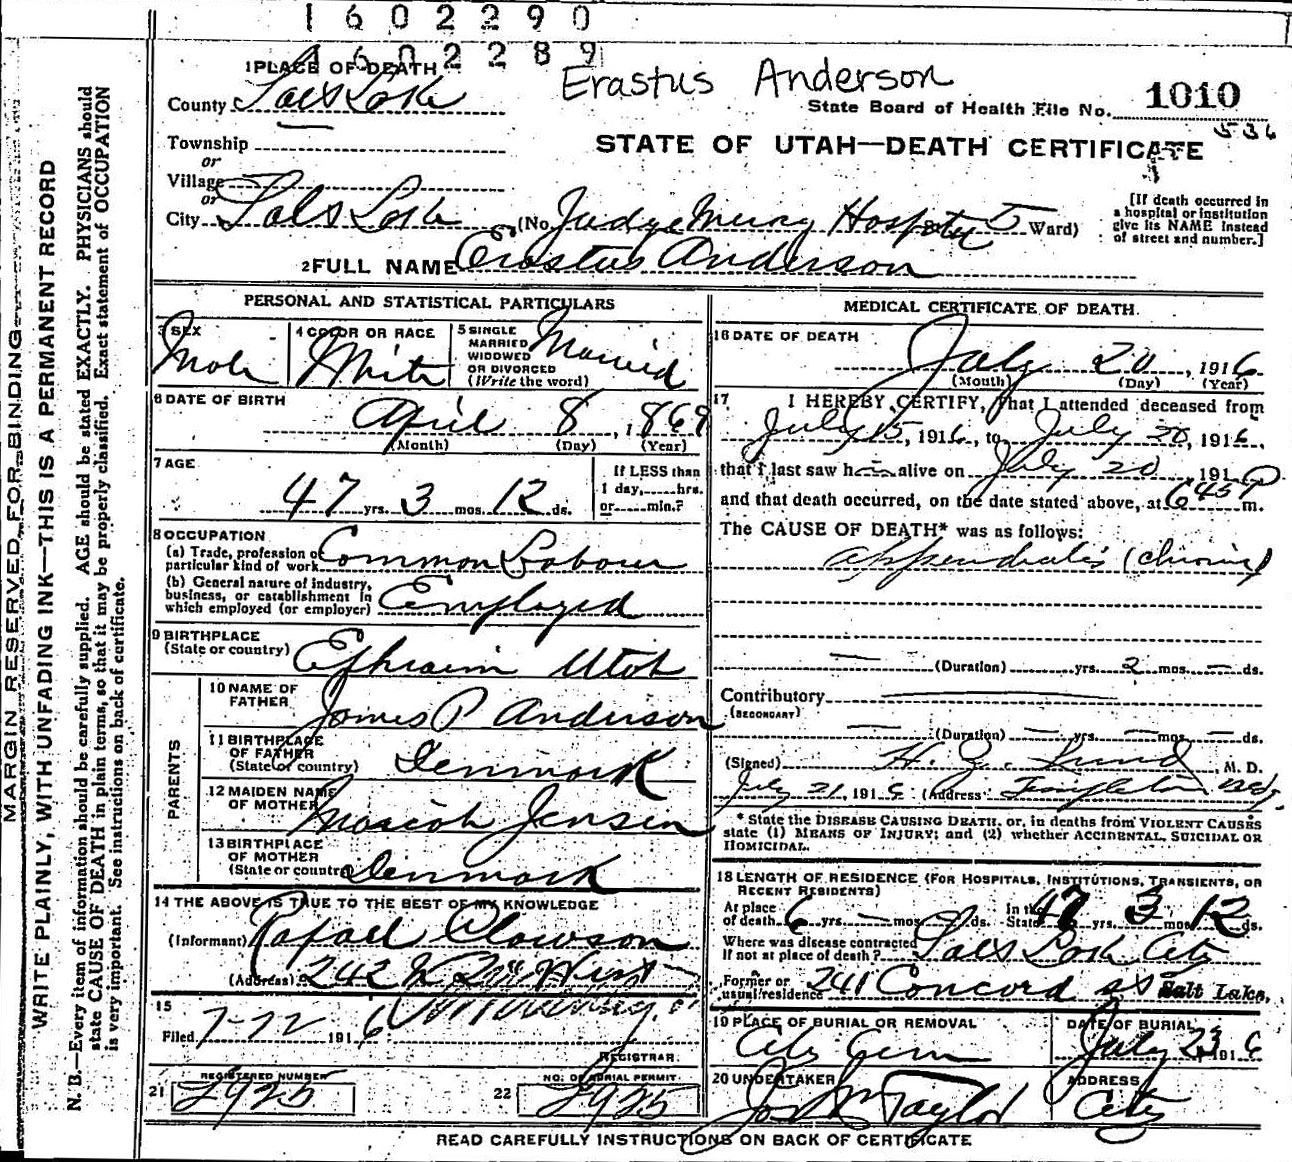 1602290
1602289
Erastus Anderson
1010
State Board of Health File No.
536
1 PLACE OF DEATH
County Salt Lake
STATE OF UTAH—DEATH CERTIFICATE
Township
or
Village
or
City Salt Lake (No. Judge Mercy Hospital St. 5 Ward)
[If death occurred in
a hospital or institution
give its NAME instead
of street and number.]
2 FULL NAME Erastus Anderson
PERSONAL AND STATISTICAL PARTICULARS
3 SEX
Male
4 COLOR OR RACE
White
5 SINGLE
MARRIED
WIDOWED
OR DIVORCED
(Write the word)
Married
6 DATE OF BIRTH
April 8, 1869
(Month) (Day) (Year)
7 AGE
47 yrs. 3 mos. 12 ds.
If LESS than
1 day, hrs.
or min.?
8 OCCUPATION
(a) Trade, profession or
particular kind of work Common Labour
(b) General nature of industry,
business, or establishment in
which employed (or employer) Employed
9 BIRTHPLACE
(State or country) Ephraim Utah
PARENTS
10 NAME OF
FATHER James P Anderson
11 BIRTHPLACE
OF FATHER
(State or country) Denmark
12 MAIDEN NAME
OF MOTHER Mariah Jensen
13 BIRTHPLACE
OF MOTHER
(State or country) Denmark
14 THE ABOVE IS TRUE TO THE BEST OF MY KNOWLEDGE
(Informant) Rafael Clawson
(Address) 242 West
15
Filed 7-22 1916
REGISTRAR
21 REGISTERED NUMBER
2925
22 NO. OF BURIAL PERMIT
2925
MEDICAL CERTIFICATE OF DEATH
16 DATE OF DEATH
July 20, 1916
(Month) (Day) (Year)
17 I HEREBY CERTIFY, That I attended deceased from
July 15, 1916, to July 20, 1916,
that I last saw him alive on July 20, 1916
and that death occurred, on the date stated above, at 6 45 P m.
The CAUSE OF DEATH* was as follows:
appendicitis (chronic)
(Duration) yrs. 2 mos. — ds.
Contributory
(SECONDARY)
(Duration) — yrs. — mos. — ds.
(Signed) H. Z. Lund, M. D.
July 21, 1916 (Address) Templeton Bldg.
* State the DISEASE CAUSING DEATH, or, in deaths from VIOLENT CAUSES
state (1) MEANS OF INJURY; and (2) whether ACCIDENTAL, SUICIDAL OR
HOMICIDAL.
18 LENGTH OF RESIDENCE (FOR HOSPITALS, INSTITUTIONS, TRANSIENTS, OR
RECENT RESIDENTS)
At place
of death 6 yrs. — mos. — ds.
In the
State 47 yrs. 3 mos. 12 ds.
Where was disease contracted
If not at place of death? Salt Lake City
Former or
usual residence 241 Concord st Salt Lake.
19 PLACE OF BURIAL OR REMOVAL
City Cem
DATE OF BURIAL
July 23 1916
20 UNDERTAKER
Jos Wm Taylor
ADDRESS
City
READ CAREFULLY INSTRUCTIONS ON BACK OF CERTIFICATE
MARGIN RESERVED FOR BINDING
WRITE PLAINLY, WITH UNFADING INK—THIS IS A PERMANENT RECORD
N. B.—Every item of information should be carefully supplied. AGE should be stated EXACTLY. PHYSICIANS should
state CAUSE OF DEATH in plain terms, so that it may be properly classified. Exact statement of OCCUPATION
is very important. See instructions on back of certificate.